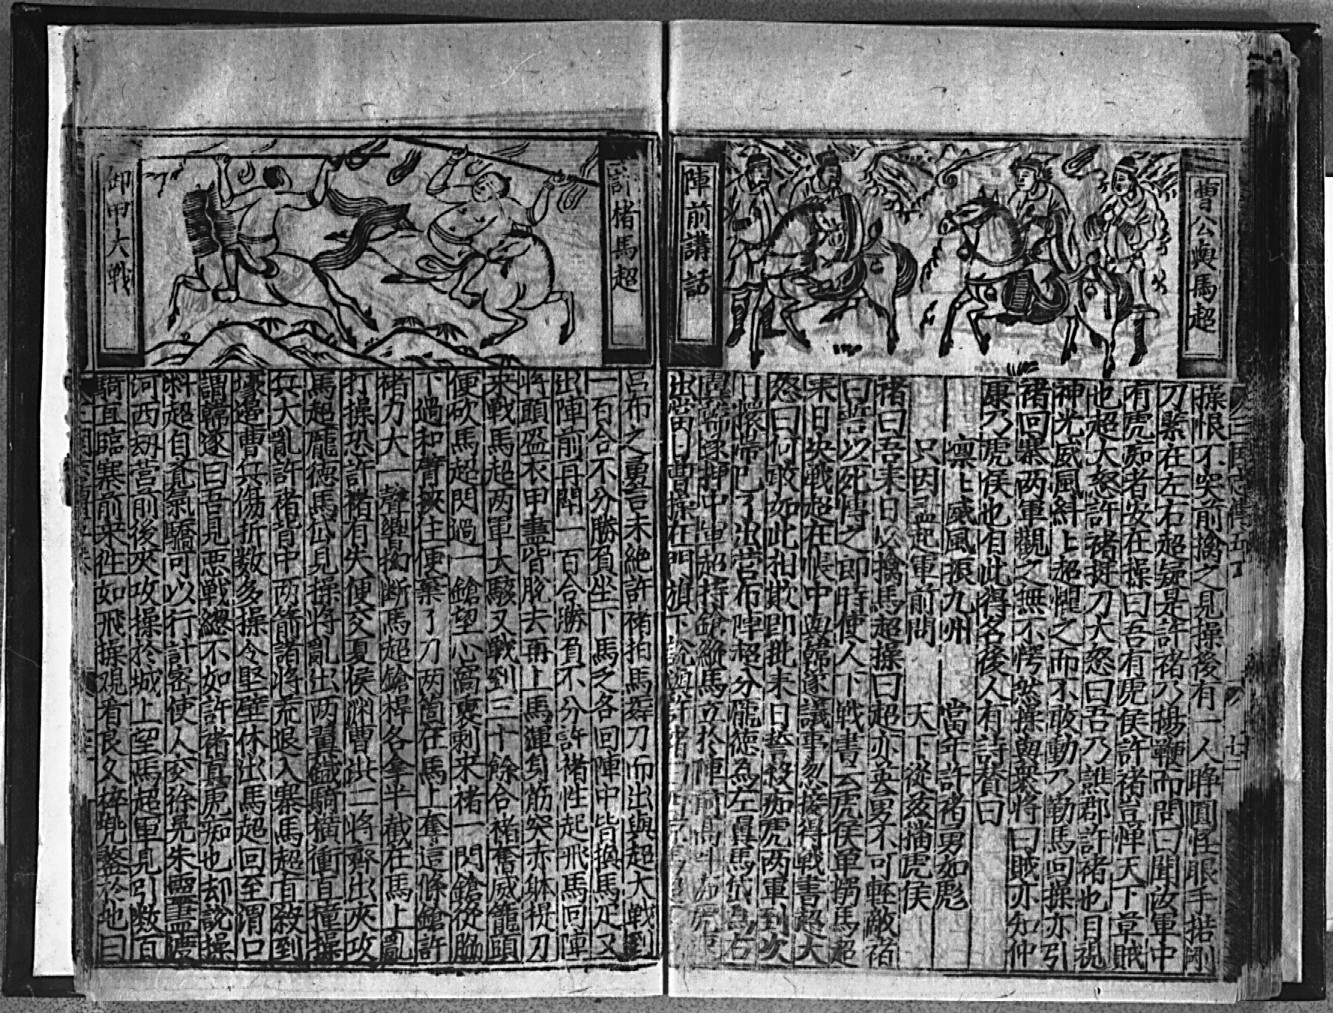 曹公與馬超
陣前講話
操恨不突前擒之見操後有一人睁圓怪眼手揩剛
刀緊在左右超疑是許褚乃揚鞭而問曰聞汝軍中
有虎侯者安在操曰吾有虎侯許褚豈憚天下草賊
也超大怒許褚挺刀大怒曰吾乃譙郡許褚也目視
神光威風紏上超懼之而不敢動乃勒馬回操亦引
褚回寨两軍觀之無不愕然操與衆將曰賊亦知仲
康乃虎侯也自此得名後人有詩賛曰
凛上威風振九州 當年許褚勇如彪
只因孟起軍前問 天下從兹播虎侯
褚曰吾来日必擒馬超操曰超亦英勇不可輕敵褚
曰誓以死恃之即時使人下戰書云虎侯单搦馬超
来日决戰超在帳中與韓遂議事忽接得戰書超大
怒曰何敢如此相欺即批末日誓殺痴虎两軍到次
日 了出营布陣超分龐德為左翼馬岱為右
韓遂押中軍超持鎗縱馬立於陣前
出 曹操在門旗下
許褚馬超
卸甲大戰
吕布之勇言未絶許褚拍馬舞刀而出與超大戰到
一百合不分勝負坐下馬乏各回陣中皆換馬疋又
出陣前再鬪一百合勝負不分許褚性起飛馬回陣
將頭盔衣甲盡皆脱去再上馬渾身筋突赤躰提刀
来戰馬超两軍大駭又戰到三十餘合褚奮威籠頭
便砍馬超閃過一鎗望心窩裏刺来褚一閃鎗從脇
下過和臂挾住便棄了刀两箇在馬上奪這條鎗許
褚力大一聲響拗斷馬超鎗桿各拿半截在馬上亂
打操恐許褚有失便交夏侯渊曹洪二將齊出夾攻
馬超龐德馬岱見操將亂出两翼鐵騎横衝直撞操
兵大亂許褚臂中两箭諸將荒退入寨馬超直殺到
壕邊曹兵傷折数多操令堅壁休出馬超回至渭口
謂韓遂曰吾見悪戰緫不如許褚真虎痴也却說操
料超自覓氣驕可以行計密使人交徐晃朱靈盡渡
河西刼营前後夾攻操於城上望馬超軍見引数百
騎直臨寨前来往如飛操观看良久碎兜鍪於地曰